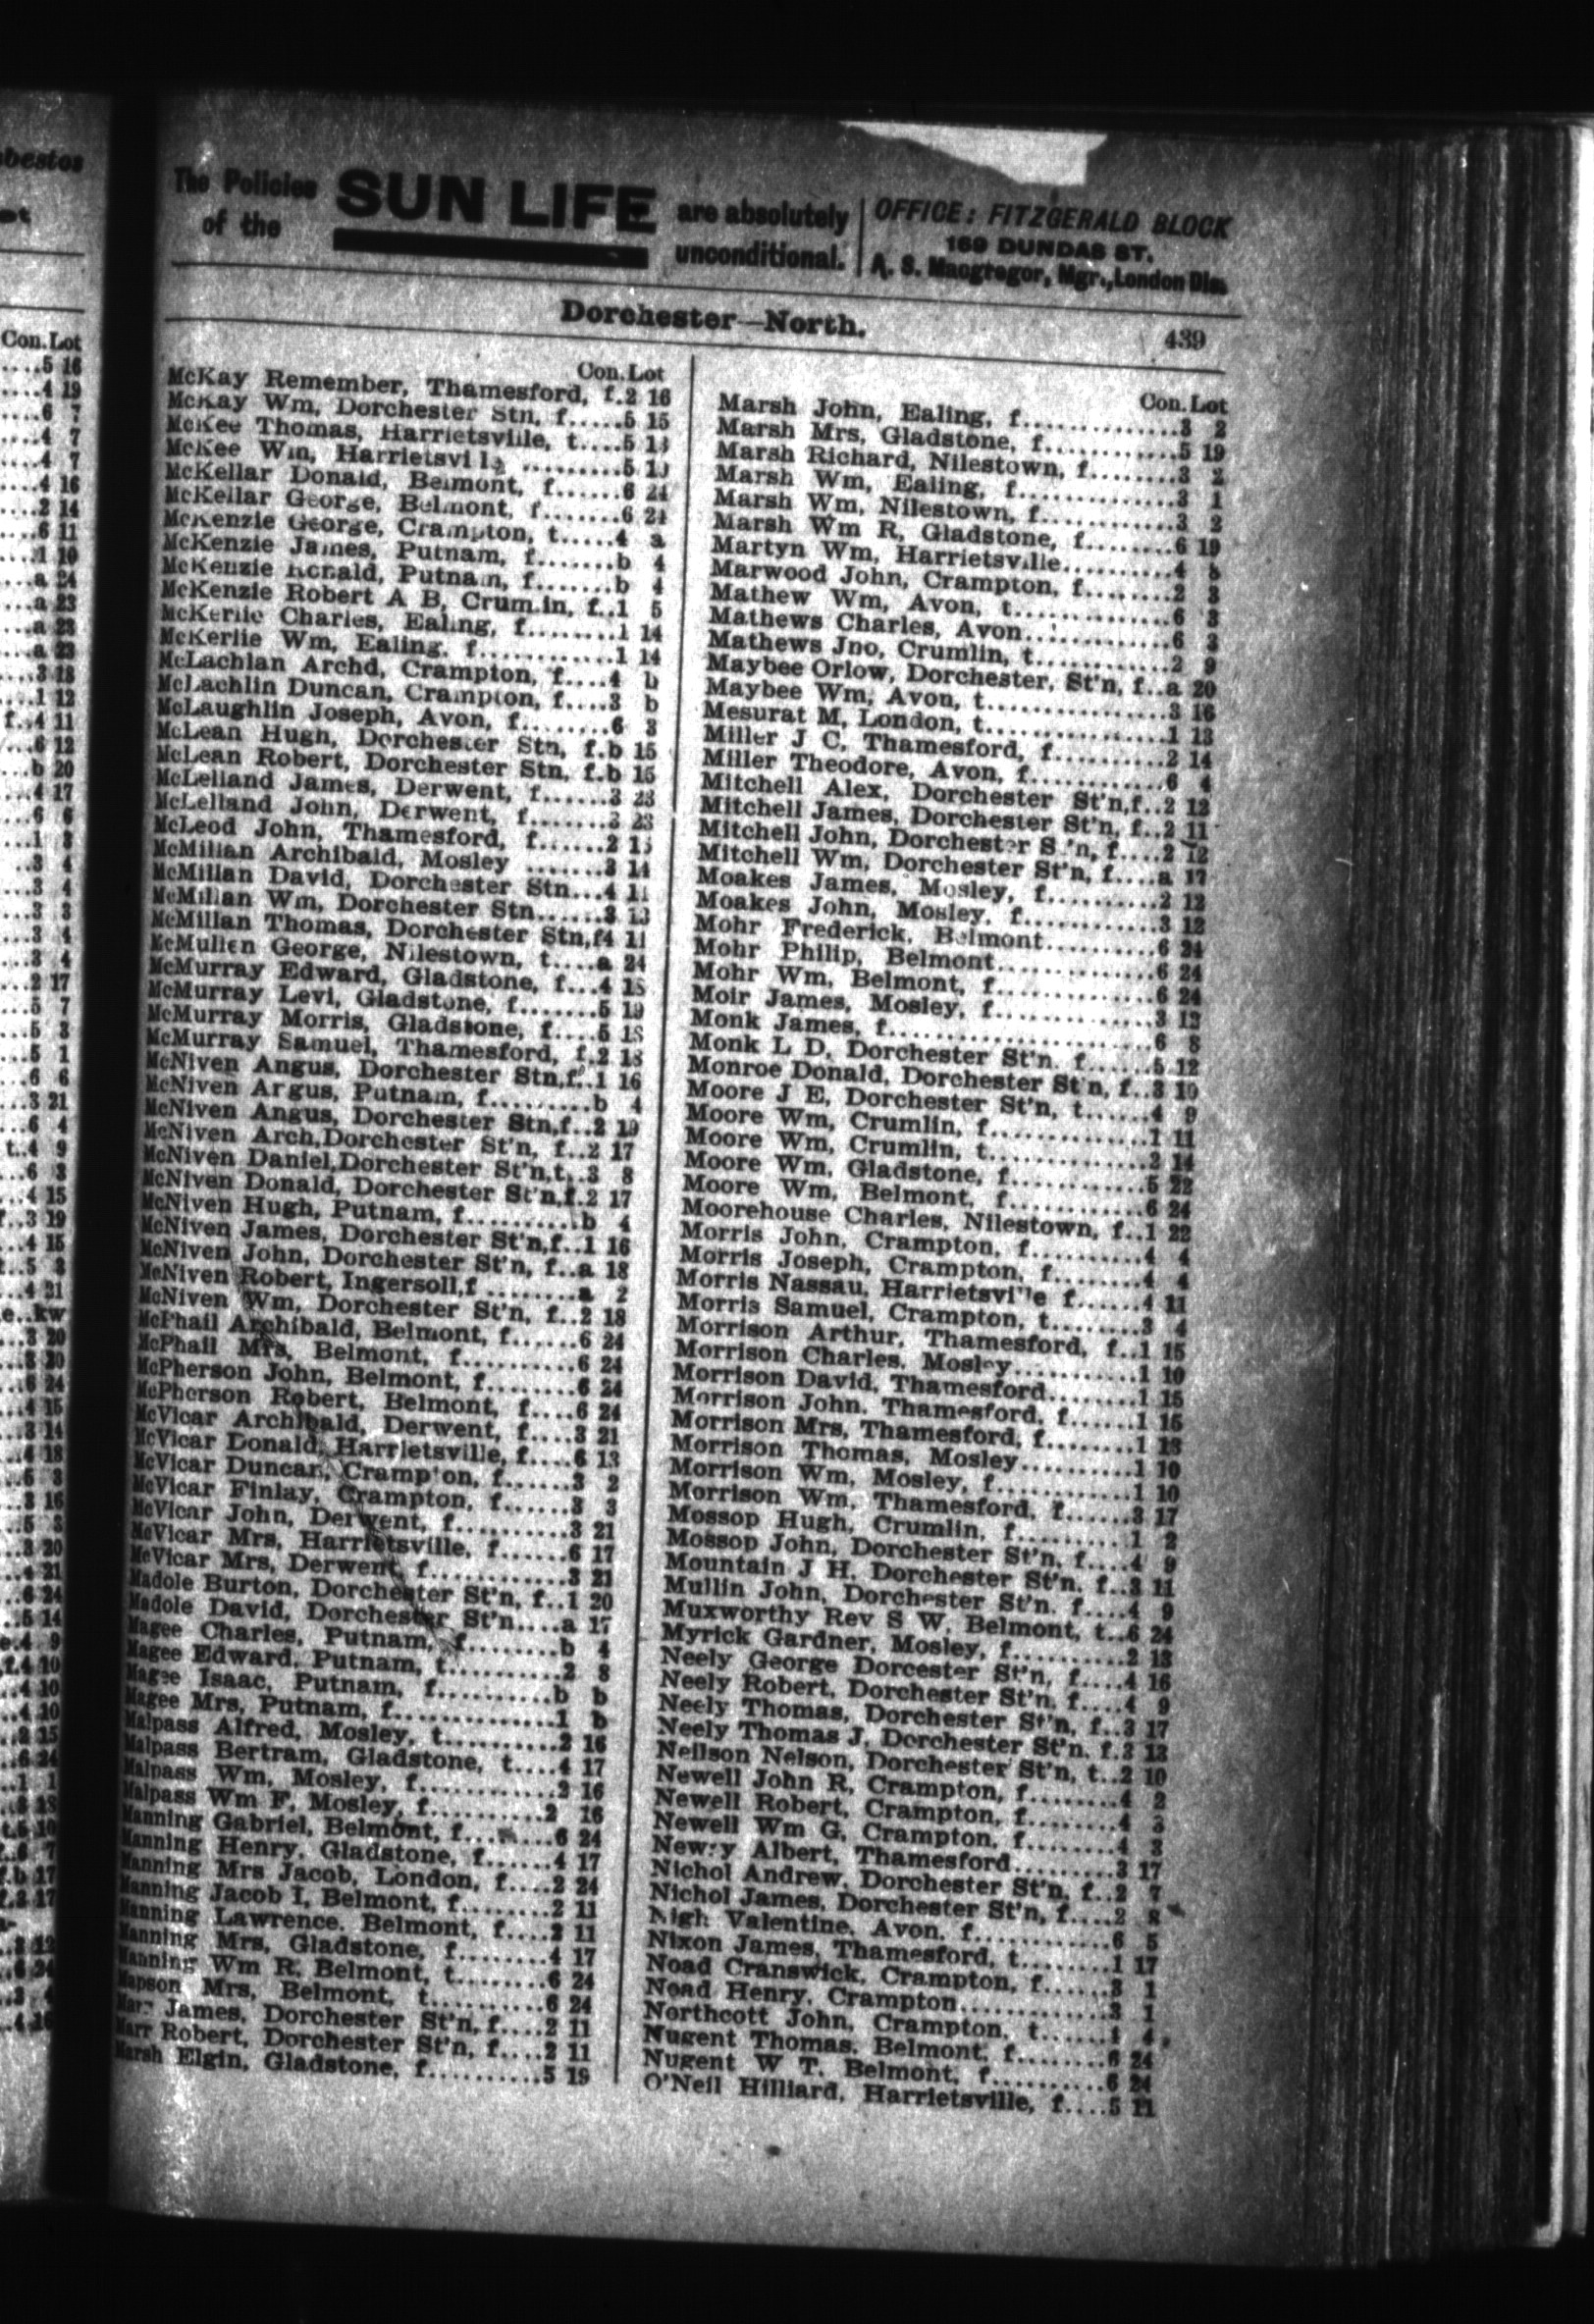 The Policies of the SUN LIFE are absolutely unconditional.
OFFICE: FITZGERALD BLOCK
169 DUNDAS ST.
A. S. Macgregor, Mgr., London Dis.
Dorchester—North. 439
Con. Lot
McKay Remember, Thamesford, f.2 16
McKay Wm, Dorchester Stn, f.....5 15
McKee Thomas, Harrietsville, t....5 13
McKee Wm, Harrietsvill .........5
McKellar Donald, Belmont, f......6 24
McKellar George, Belmont, f.......6 24
McKenzie George, Crampton, t.....4 a
McKenzie James, Putnam, f.......b 4
McKenzie Ronald, Putnam, f.......b 4
McKenzie Robert A B, Crumlin, f..1 5
McKerlie Charles, Ealing, f........1 14
McKerlie Wm, Ealing, f............1 14
McLachlan Archd, Crampton, f....4 b
McLachlin Duncan, Crampton, f....3 b
McLaughlin Joseph, Avon, f.......6 3
McLean Hugh, Dorchester Stn, f.b 15
McLean Robert, Dorchester Stn, f.b 15
McLelland James, Derwent, f......3 23
McLelland John, Derwent, f.......3 23
McLeod John, Thamesford, f......2
McMillan Archibald, Mosley .......3 14
McMillan David, Dorchester Stn...4 11
McMillan Wm, Dorchester Stn......3 13
McMillan Thomas, Dorchester Stn,f4 11
McMullen George, Nilestown, t....a 24
McMurray Edward, Gladstone, f...4 18
McMurray Levi, Gladstone, f.......5 19
McMurray Morris, Gladstone, f....5 18
McMurray Samuel, Thamesford, f.2 18
McNiven Angus, Dorchester Stn,f..1 16
McNiven Argus, Putnam, f.........b 4
McNiven Angus, Dorchester Stn,f..2 19
McNiven Arch,Dorchester St'n, f..2 17
McNiven Daniel,Dorchester St'n,t..3 8
McNiven Donald, Dorchester St'n,f.2 17
McNiven Hugh, Putnam, f..........b 4
McNiven James, Dorchester St'n,f..1 16
McNiven John, Dorchester St'n, f..a 18
McNiven Robert, Ingersoll,f ........a 2
McNiven Wm, Dorchester St'n, f..2 18
McPhail Archibald, Belmont, f......6 24
McPhail Mrs, Belmont, f..........6 24
McPherson John, Belmont, f.......6 24
McPherson Robert, Belmont, f....6 24
McVicar Archibald, Derwent, f....3 21
McVicar Donald, Harrietsville, f....6 13
McVicar Duncan, Crampton, f......3 2
McVicar Finlay, Crampton, f......3 3
McVicar John, Derwent, f..........3 21
McVicar Mrs, Harrietsville, f......6 17
McVicar Mrs, Derwent, f...........3 21
Madole Burton, Dorchester St'n, f..1 20
Madole David, Dorchester St'n....a 17
Magee Charles, Putnam, f........b 4
Magee Edward, Putnam, t..........2 8
Magee Isaac, Putnam, f..........b b
Magee Mrs, Putnam, f..............1 b
Malpass Alfred, Mosley, t..........2 16
Malpass Bertram, Gladstone, t....4 17
Malpass Wm, Mosley, f............2 16
Malpass Wm F, Mosley, f..........2 16
Manning Gabriel, Belmont, f.......6 24
Manning Henry, Gladstone, f......4 17
Manning Mrs Jacob, London, f....2 24
Manning Jacob I, Belmont, f........2 11
Manning Lawrence. Belmont, f....2 11
Manning Mrs, Gladstone, f........4 17
Manning Wm R, Belmont, t........6 24
Mapson Mrs, Belmont, t..........6 24
Marr James, Dorchester St'n, f....2 11
Marr Robert, Dorchester St'n, f....2 11
Marsh Elgin, Gladstone, f..........5 19
Con. Lot
Marsh John, Ealing, f..............3 2
Marsh Mrs, Gladstone, f............5 19
Marsh Richard, Nilestown, f........3 2
Marsh Wm, Ealing, f..............3 1
Marsh Wm, Nilestown, f............3 2
Marsh Wm R, Gladstone, f........6 19
Martyn Wm, Harrietsville..........4
Marwood John, Crampton, f.......2 3
Mathew Wm, Avon, t..............6 3
Mathews Charles, Avon............6 3
Mathews Jno, Crumlin, t............2 9
Maybee Orlow, Dorchester, St'n, f..a 20
Maybee Wm, Avon, t................3 16
Mesurat M, London, t..............1 13
Miller J C, Thamesford, f..........2 14
Miller Theodore, Avon, f..........6 4
Mitchell Alex, Dorchester St'n,f..2 12
Mitchell James, Dorchester St'n, f..2 11
Mitchell John, Dorchester S 'n, f....2 12
Mitchell Wm, Dorchester St'n, f....a 17
Moakes James, Mosley, f..........2 12
Moakes John, Mosley, f............3 12
Mohr Frederick, Belmont..........6 24
Mohr Philip, Belmont..............6 24
Mohr Wm, Belmont, f............6 24
Moir James, Mosley, f..............3 12
Monk James, f....................6 8
Monk L D, Dorchester St'n, f......5 12
Monroe Donald, Dorchester St'n, f..3 10
Moore J E, Dorchester St'n, t......4 9
Moore Wm, Crumlin, f..............1 11
Moore Wm, Crumlin, t..............2 14
Moore Wm, Gladstone, f............5 22
Moore Wm, Belmont, f............6 24
Moorehouse Charles, Nilestown, f..1 22
Morris John, Crampton, f..........4 4
Morris Joseph, Crampton, f........4 4
Morris Nassau, Harrietsvi'le f......4 11
Morris Samuel, Crampton, t........3 4
Morrison Arthur, Thamesford, f..1 15
Morrison Charles. Mosley...........1 10
Morrison David, Thamesford........1 15
Morrison John. Thamesford, f......1 15
Morrison Mrs, Thamesford, f........1 13
Morrison Thomas, Mosley...........1 10
Morrison Wm, Mosley, f............1 10
Morrison Wm, Thamesford, f......3 17
Mossop Hugh, Crumlin, f..........1 2
Mossop John, Dorchester St'n, f....4 9
Mountain J H. Dorchester St'n. f..3 11
Mullin John, Dorchester St'n. f....4 9
Muxworthy Rev S W, Belmont, t..6 24
Myrick Gardner, Mosley, f..........2 13
Neely George Dorcester St'n, f....4 16
Neely Robert, Dorchester St'n, f....4 9
Neely Thomas, Dorchester St'n, f..3 17
Neely Thomas J, Dorchester St'n. f.2 12
Neilson Nelson, Dorchester St'n, t..2 10
Newell John R, Crampton, f........4 2
Newell Robert, Crampton, f........4 3
Newell Wm G, Crampton, f........4 3
Newry Albert, Thamesford..........3 17
Nichol Andrew, Dorchester St'n, f..2 7
Nichol James, Dorchester St'n, f....2 8
Nigh Valentine, Avon, f............6 5
Nixon James, Thamesford, t........1 17
Noad Cranswick, Crampton, f......3 1
Noad Henry, Crampton.............3 1
Northcott John, Crampton, t...... 4
Nugent Thomas, Belmont, f........6 24
Nugent W T, Belmont, f..........6 24
O'Neil Hilliard, Harrietsville, f....5 11